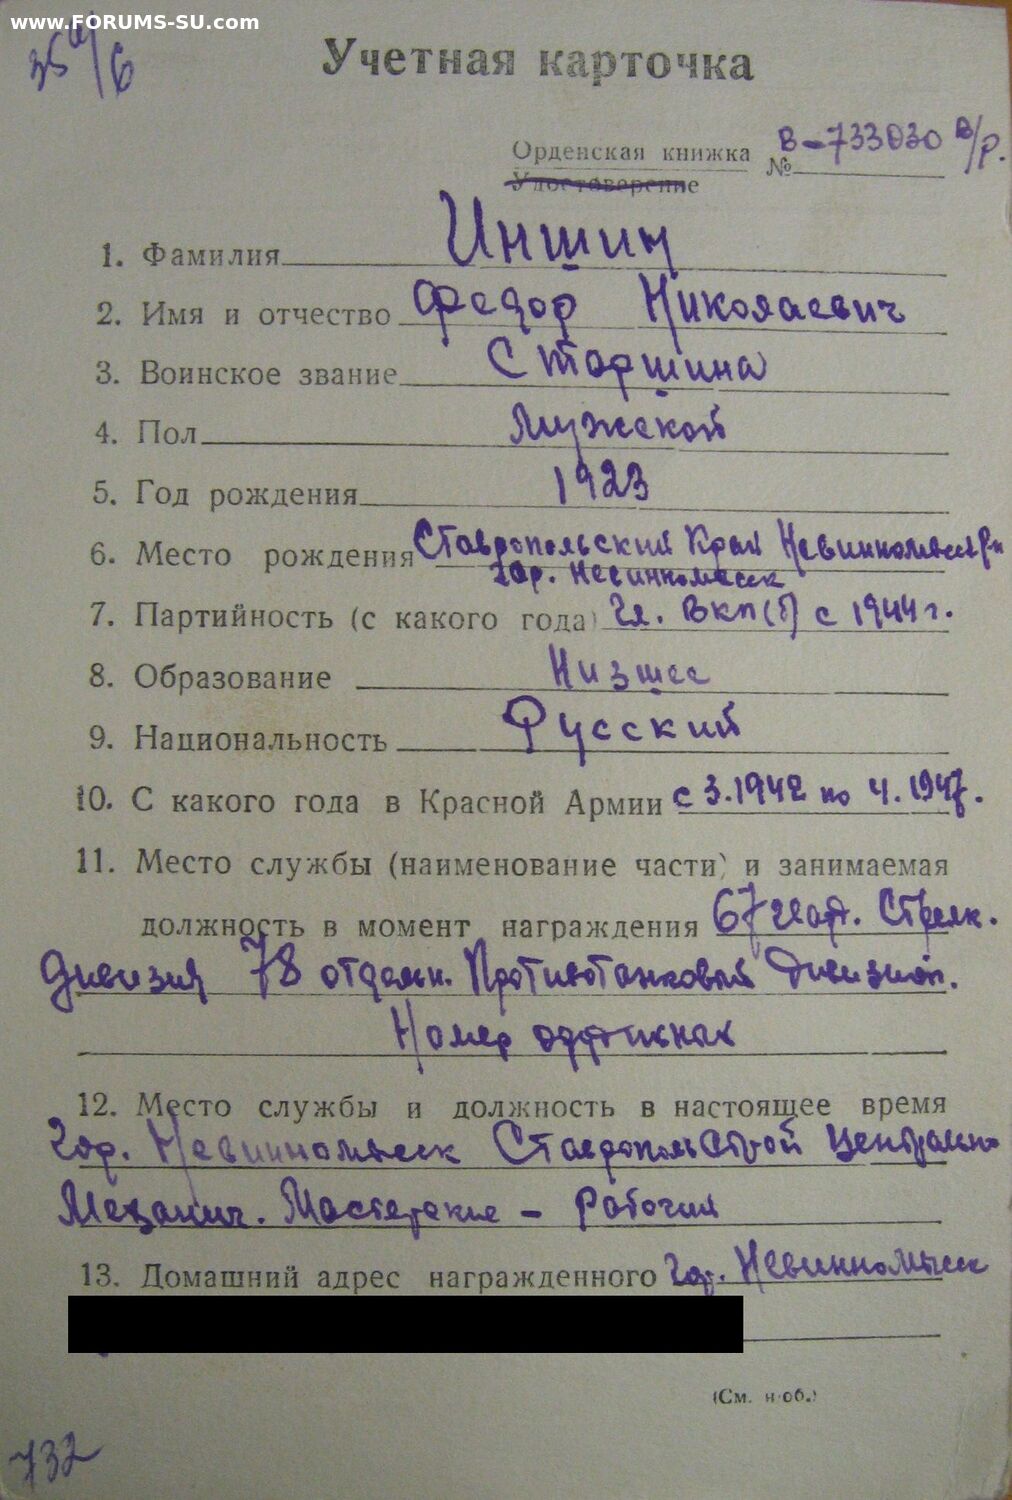 www.FORUMS-SU.com
Учетная карточка
Орденская книжка № В-733030 В/р.
Удостоверение
1. Фамилия Иншин
2. Имя и отчество Федор Николаевич
3. Воинское звание Старшина
4. Пол Мужской
5. Год рождения 1923
6. Место рождения Ставропольский Край
гор. Невинномысск
7. Партийность (с какого года) Чл. ВКП(б) с 1944 г.
8. Образование Низшее
9. Национальность Русский
10. С какого года в Красной Армии с 3.1942 по 4.1947.
11. Место службы (наименование части) и занимаемая
должность в момент награждения 67 гвард. Стрелк.
Дивизия 78 отдельн. Противотанковый Дивизион.
Номер
12. Место службы и должность в настоящее время
гор. Невинномысск Ставропольстрой Центрально
Механич. Мастерские - Рабочий
13. Домашний адрес награжденного гор. Невинномысск
(См. н об.)
732